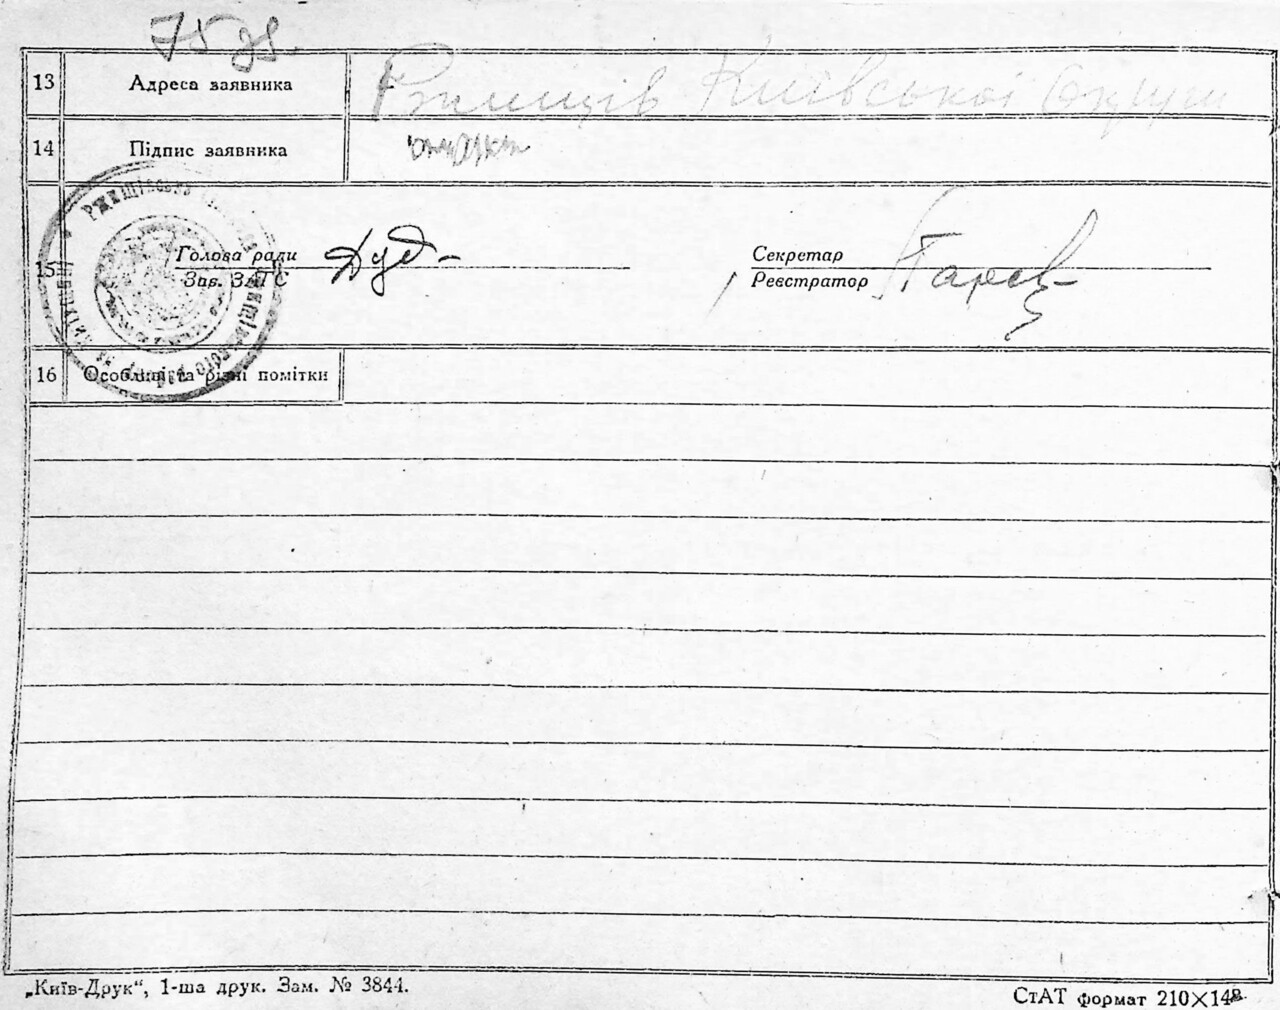 75
13 Адреса заявника Ржищів Київської Округи
14 Підпис заявника
15 Голова ради Секретар
Зав. ЗАГС Реєстратор
16 Особливі та різні помітки
„Київ-Друк“, 1-ша друк. Зам. № 3844.
СтАТ формат 210×148.